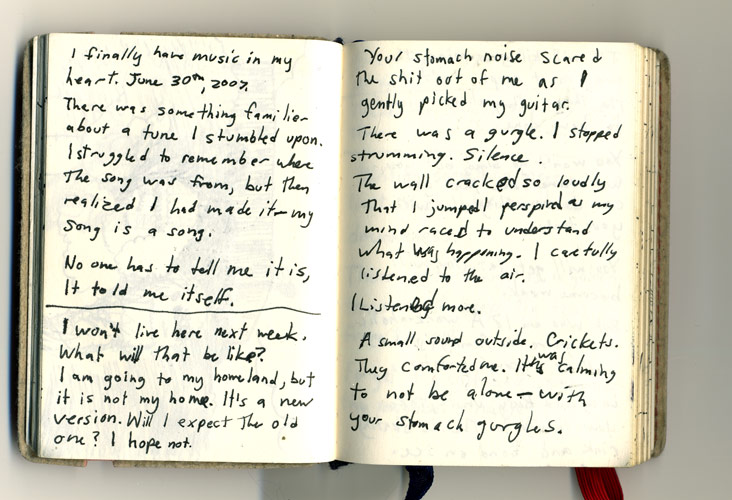 I finally have music in my
heart. June 30th, 2007.
There was something familiar
about a tune I stumbled upon.
I struggled to remember where
The song was from, but then
realized I had made it - my
Song is a song.
No one has to tell me it is,
It told me itself.
I won't live here next week.
What will that be like?
I am going to my homeland, but
it is not my home. It's a new
version. Will I expect The old
one? I hope not.
Your stomach noise Scared
the shit out of me as I
gently picked my guitar.
There was a gurgle. I stopped
strumming. Silence.
The wall cracked so loudly
That I jumped I perspired as my
mind raced to understand
what was happening. I carefully
listened to the air.
I Listened more.
A small sound outside. Crickets.
They comforted me. It was calming
to not be alone - with
your stomach gurgles.